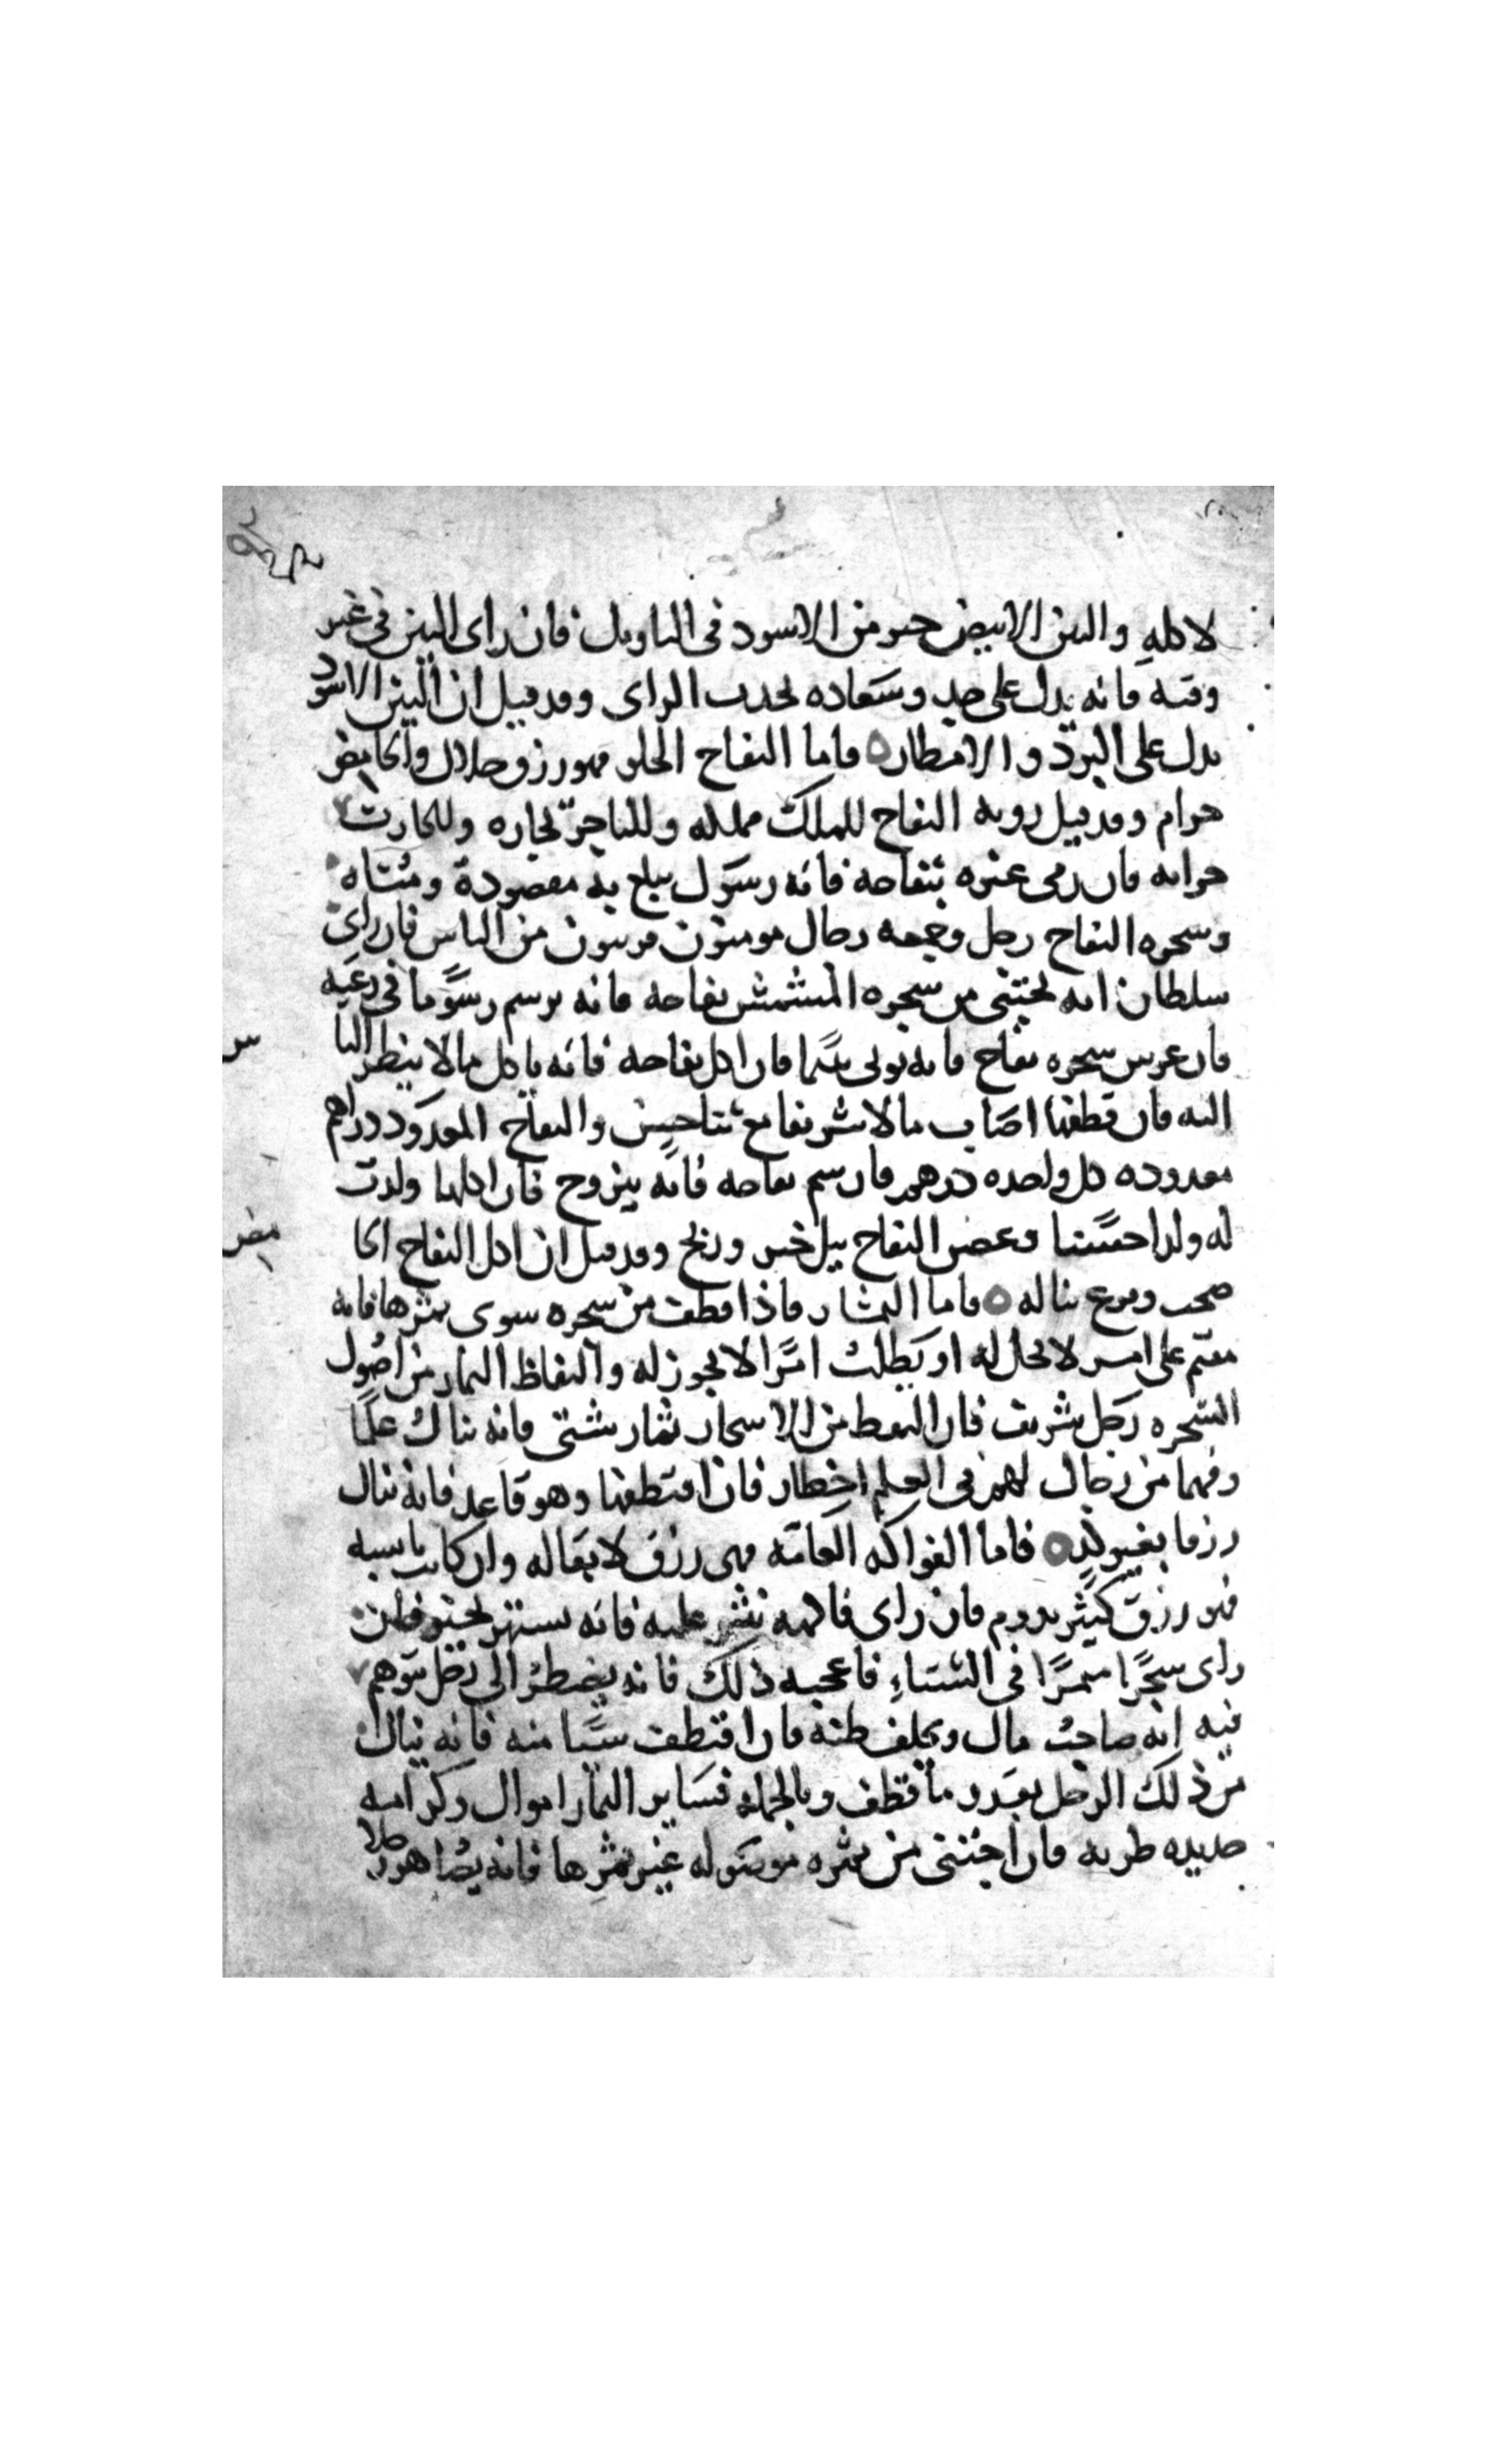 لاكله والتين الابيض خير من الاسود في التاويل فان راى التين في غير
وقته فانه يدل على حسد وسعاده تحدث الراى وقد قيل ان التين الاسود
يدل على البرد والامطار ه فاما التفاح الحلو فهو رزق حلال والحامض
حرام وقد قيل رويه التفاح للملك مملكه وللتاجر تجاره وللحارث
حراثه فان رمى غيره بتفاحه فانه رسول يبلغ به مقصودة ومشتاه
وشجره التفاح رجل وجمعه رجال مومنون قريبون من الناس فان راى
سلطان انه يجتنى من شجره المشمش تفاحه فانه يرسم رسوما في رعيه
فان غرس شجره تفاح فانه يولى يتيما فان اكل تفاحه فانه ياكل مالا ينظر الناس
اليه فان قطفها اصاب مالا شريفا مع ثنا حسن والتفاح المعدود دراهم
معدوده كل واحده درهم فان شم تفاحه فانه يتزوج فان اكلها ولدت
له ولدا حسنا وعض التفاح نيل خير وربح وقد قيل ان اكل التفاح الحامض
صخب وفزع يناله ه فاما الثمار فاذا قطفت من شجره سوى ثمرها فانه
مقيم على امر لا يحل له او يطلب امرا لا يجوز له والتقاط الثمار من اصول
الشجره رجل شريف فان التقط من الاشجار ثمار شتى فانه ينال علما
وفهما من رجال لهم في العلم اخطار فان اقتطفها وهو قاعد فانه ينال
رزقا بغير كد ه فاما الفواكه العامه فهى رزق لا بقا له وان كانت يابسه
فهو رزق كثير يدوم فان راى فاكهه نثر عليه فانه يشتهر بخير فان
راى شجرا مثمرا في الشتاء فاعجبه ذلك فانه يضطر الى رجل يتوهم
فيه انه صاحب مال ويخلف ظنه فان اقتطف شيا منه فانه ينال
من ذلك الرجل بقدر ما قطف وبالجمله فساير الثمار اموال وكراميه
جديده طريه فان اجتنى من ثمره موصوله غير ثمرها فانه يصاهر رجلا